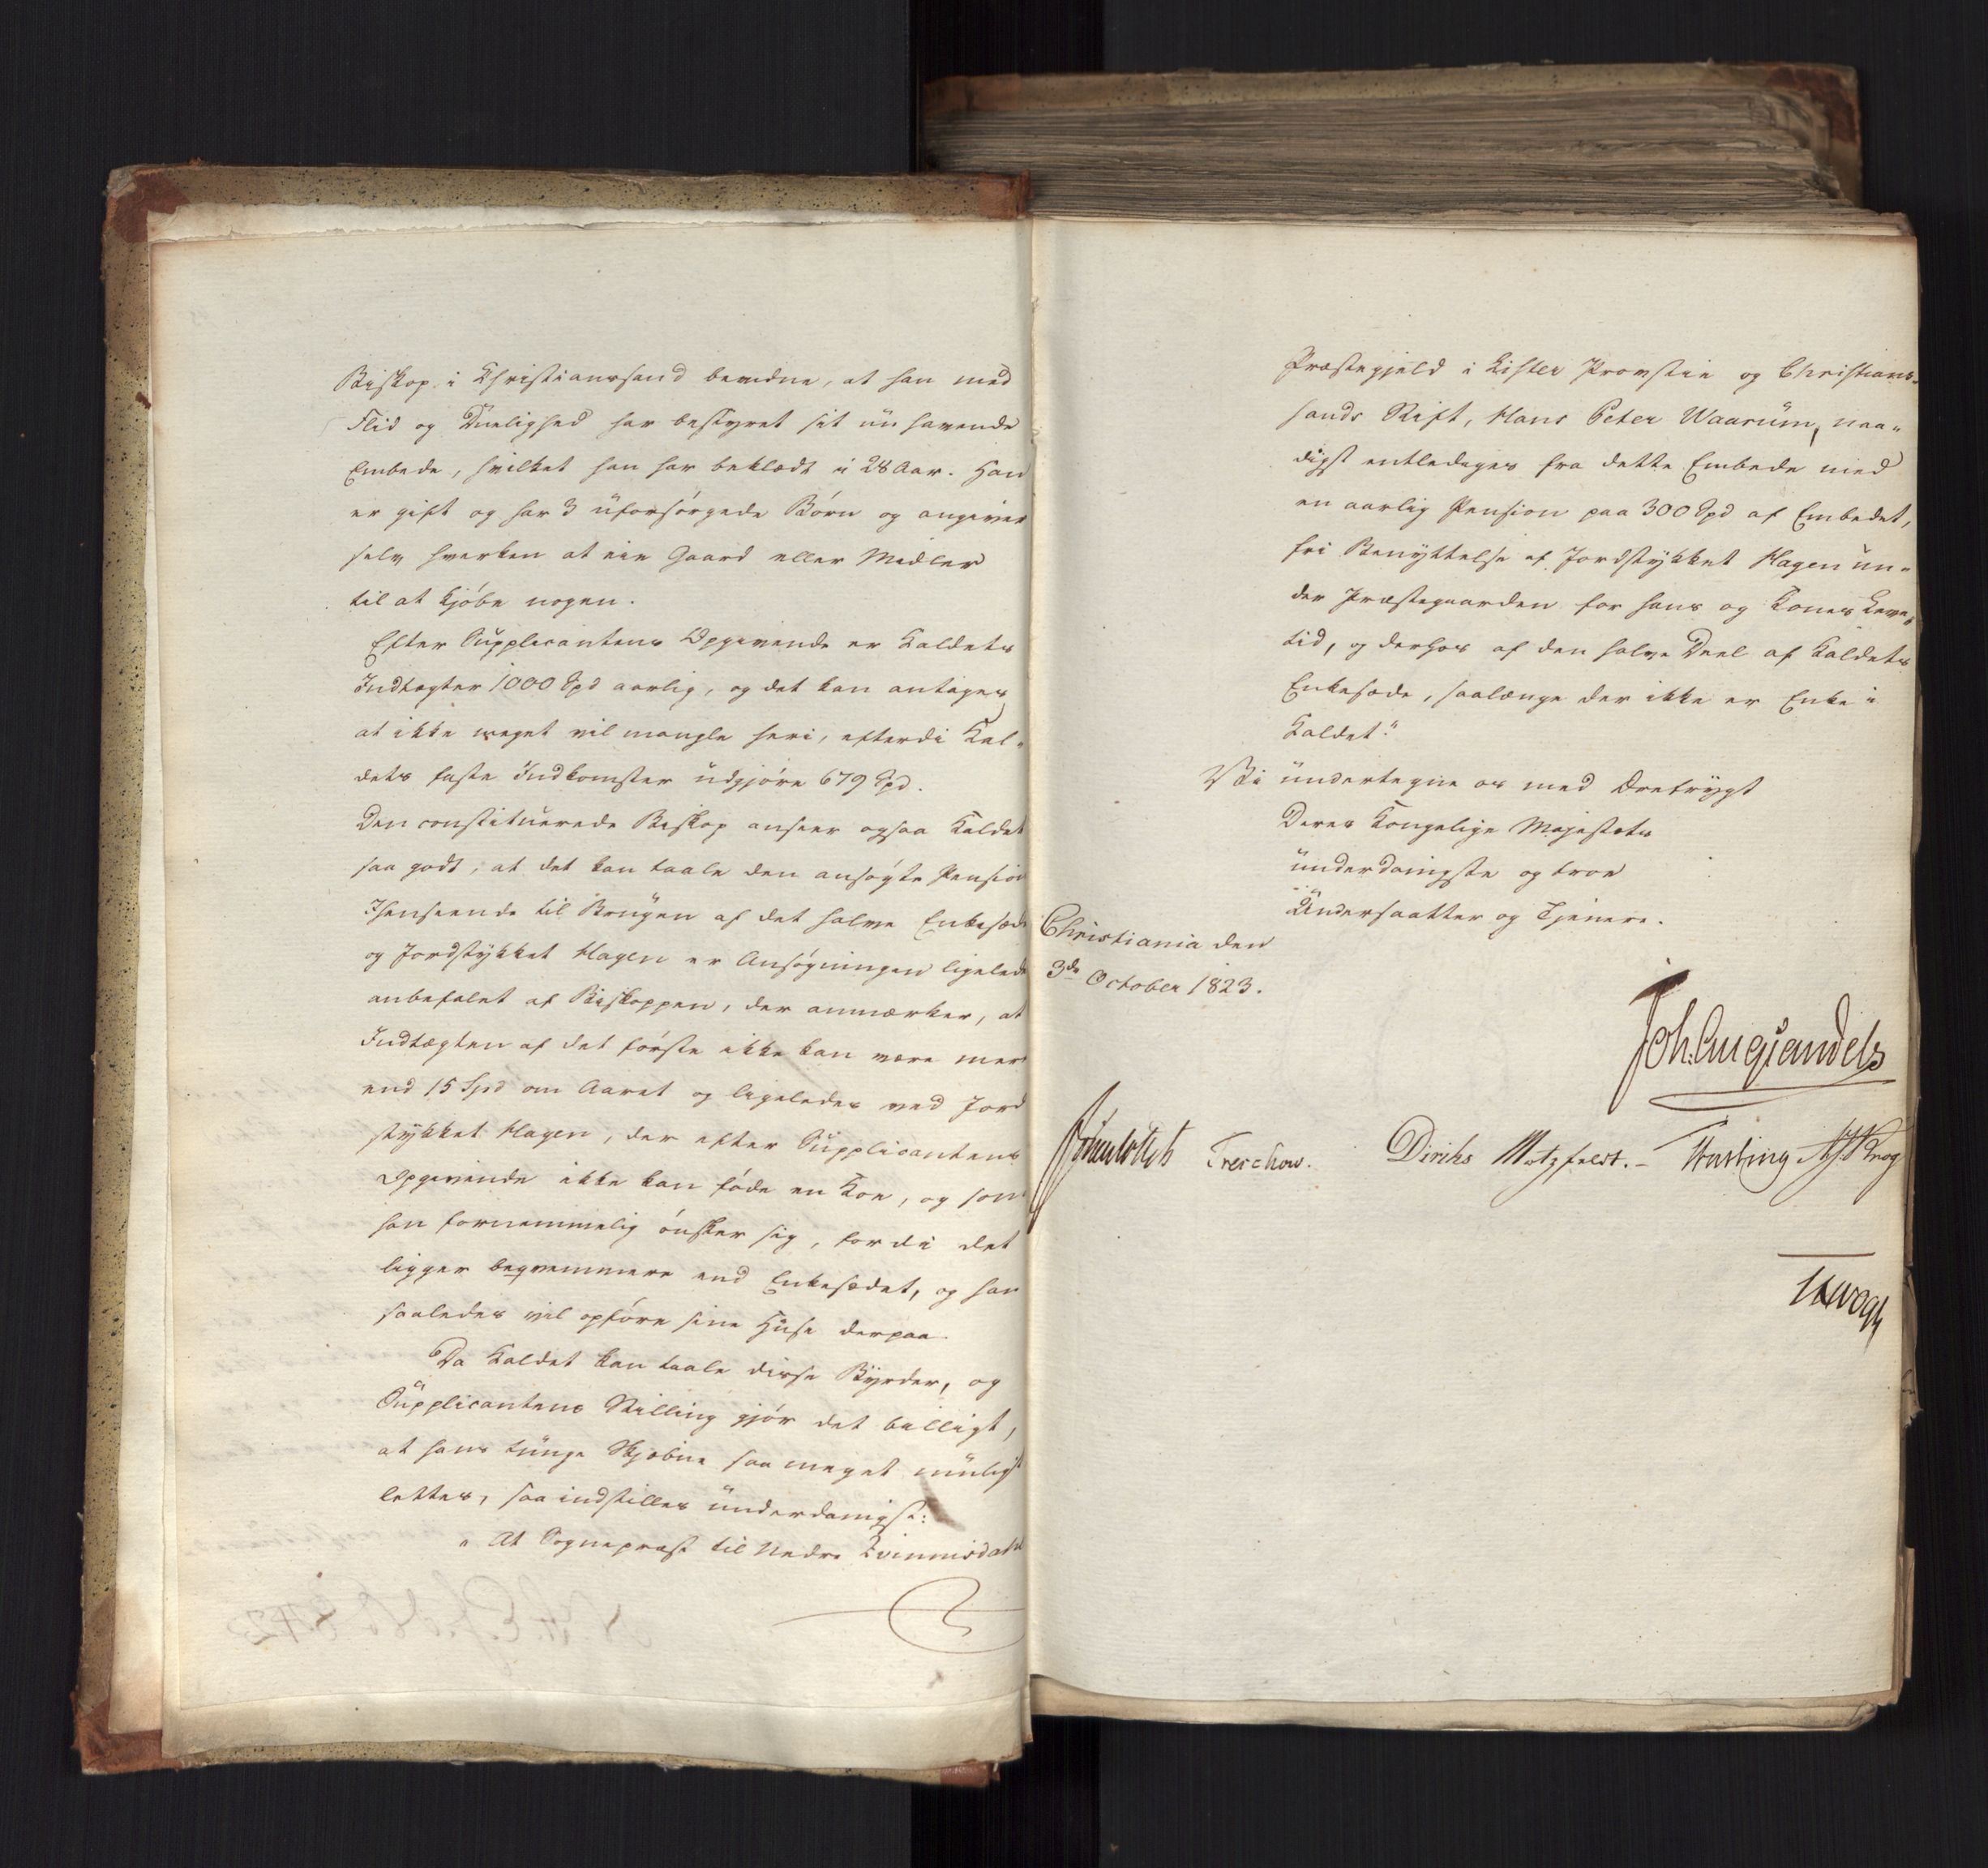 Biskop i Christianssand bevidne, at han med
Flid og Duelighed har bestyret sit nu havende
Embede, hvilket han har beklædt i 28 Aar. Han
er gift og har 3 uforsørgede Børn og angiver
selv hverken at eie Gaard eller Midler
til at kjøbe nogen.
Efter Supplicantens Opgivende er Kaldets
Indtægter 1000 Spd aarlig, og det kan antages
at ikke meget vil mangle heri, efterdi Kal-
dets faste Indkomster udgjøre 679 Spd.
Den constituerede Biskop anseer ogsaa Kaldet
saa godt, at det kan taale den ansøgte Pension
I Henseende til Brugen af det halve Enkesæde
og Jordstykket Hagen er Ansøgningen ligelede
anbefalet af Biskoppen, der anmærker, at
Indtægten af det første ikke kan være mer
end 15 Spd om Aaret og ligeledes ved Jord
stykket Hagen, der efter Supplicantens
Opgivende ikke kan føde en Koe, og som
han fornemmelig ønsker sig, fordi det
ligger beqvemmere end Enkesædet, og han
saaledes vil opføre sine Huse derpaa.
Da Kaldet kan taale disse Byrder, og
Supplicantens Stilling gjør det billigt,
at hans tunge Skjebne saa meget muligt
lettes, saa indstilles underdanigst:
" At Sognepræst til Nedre Qvinnisdahl
Præstegjeld i Lister Provstie og Christians-
sands Stift, Hans Peter Waarum, naa-
digst entlediges fra dette Embede med
en aarlig Pension paa 300 Spd af Embedet,
fri Benyttelse af Jordstykket Hagen un-
der Præstegaarden for hans og Kones Leve-
tid, og derhos af den halve Deel af Kaldets
Enkesæde, saalænge der ikke er Enke i
Kaldet."
Vi undertegne os med Ærefrygt
Deres Kongelige Majestæts
underdanigste og troe
Undersaatter og Tjenere.
Christiania den
3de October 1823.
Joh. Aug. Sandels
Sommerhielm Treschow. Diriks Motzfeldt. - Fasting J. H. Krog
Vogt